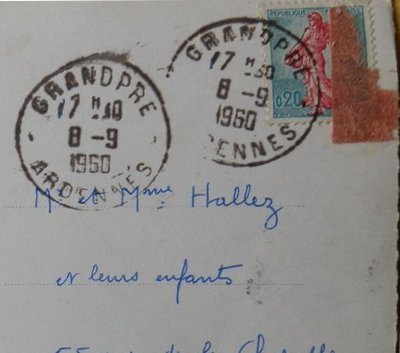 GRANDPRE
17 H 30
8 - 9
1960
ARDENNES
GRANDPRE
17 H 30
8 - 9
1960
DENNES
REPUBLIQUE
0,20
Mr et Mme Hallez
et leurs enfants
55 rue de la